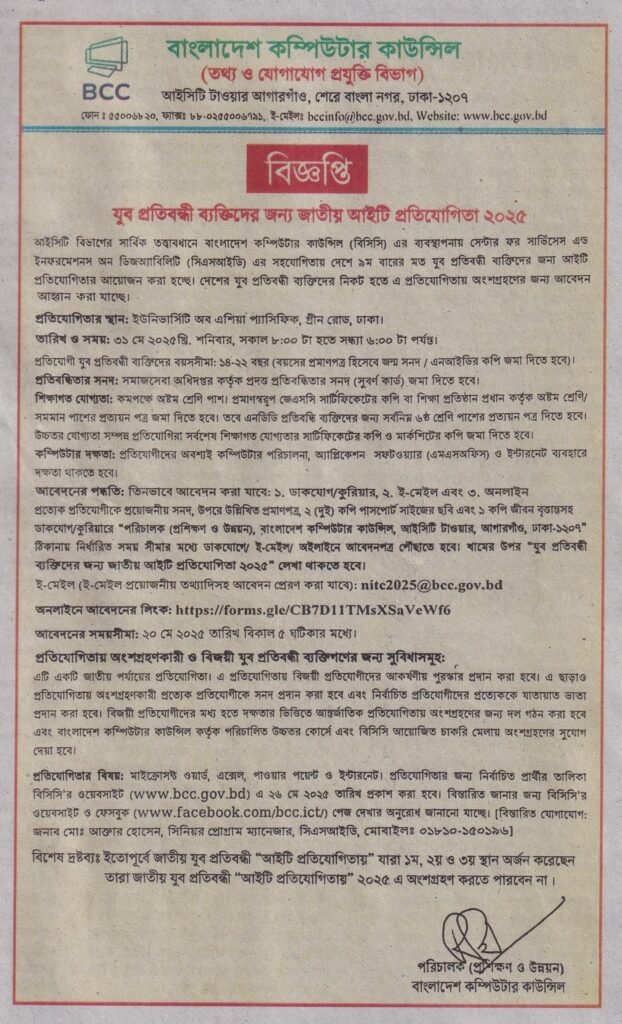 BCC
বাংলাদেশ কম্পিউটার কাউন্সিল
(তথ্য ও যোগাযোগ প্রযুক্তি বিভাগ)
আইসিটি টাওয়ার আগারগাঁও, শেরে বাংলা নগর, ঢাকা-১২০৭
ফোন : ৫৫০০৬৮২০, ফ্যাক্সঃ ৮৮-০২৫৫০০৬৭৯১, ই-মেইলঃ bccinfo@bcc.gov.bd, Website: www.bcc.gov.bd
বিজ্ঞপ্তি
যুব প্রতিবন্ধী ব্যক্তিদের জন্য জাতীয় আইটি প্রতিযোগিতা ২০২৫
আইসিটি বিভাগের সার্বিক তত্ত্বাবধানে বাংলাদেশ কম্পিউটার কাউন্সিল (বিসিসি) এর ব্যবস্থাপনায় সেন্টার ফর সার্ভিসেস এন্ড
ইনফরমেশনস অন ডিজঅ্যাবিলিটি (সিএসআইডি) এর সহযোগিতায় দেশে ৯ম বারের মত যুব প্রতিবন্ধী ব্যক্তিদের জন্য আইটি
প্রতিযোগিতার আয়োজন করা হচ্ছে। দেশের যুব প্রতিবন্ধী ব্যক্তিদের নিকট হতে এ প্রতিযোগিতায় অংশগ্রহণের জন্য আবেদন
আহ্বান করা যাচ্ছে।
প্রতিযোগিতার স্থান: ইউনিভার্সিটি অব এশিয়া প্যাসিফিক, গ্রীন রোড, ঢাকা।
তারিখ ও সময়: ৩১ মে ২০২৫খ্রি. শনিবার, সকাল ৮:০০ টা হতে সন্ধ্যা ৬:০০ টা পর্যন্ত।
প্রতিযোগী যুব প্রতিবন্ধী ব্যক্তিদের বয়সসীমা: ১৪-২২ বছর (বয়সের প্রমাণপত্র হিসেবে জন্ম সনদ / এনআইডির কপি জমা দিতে হবে)।
প্রতিবন্ধিতার সনদ: সমাজসেবা অধিদপ্তর কর্তৃক প্রদত্ত প্রতিবন্ধিতার সনদ (সুবর্ণ কার্ড) জমা দিতে হবে।
শিক্ষাগত যোগ্যতা: কমপক্ষে অষ্টম শ্রেণি পাশ। প্রমাণস্বরুপ জেএসসি সার্টিফিকেটের কপি বা শিক্ষা প্রতিষ্ঠান প্রধান কর্তৃক অষ্টম শ্রেণি/
সমমান পাশের প্রত্যয়ন পত্র জমা দিতে হবে। তবে এনডিডি প্রতিবন্ধি ব্যক্তিদের জন্য সর্বনিম্ন ৬ষ্ঠ শ্রেণি পাশের প্রত্যয়ন পত্র দিতে হবে।
উচ্চতর যোগ্যতা সম্পন্ন প্রতিযোগিরা সর্বশেষ শিক্ষাগত যোগ্যতার সার্টিফিকেটের কপি ও মার্কশিটের কপি জমা দিতে হবে।
কম্পিউটার দক্ষতা: প্রতিযোগীদের অবশ্যই কম্পিউটার পরিচালনা, অ্যাপ্লিকেশন সফটওয়্যার (এমএসঅফিস) ও ইন্টারনেট ব্যবহারে
দক্ষতা থাকতে হবে।
আবেদনের পদ্ধতি: তিনভাবে আবেদন করা যাবে: ১. ডাকযোগ/কুরিয়ার, ২. ই-মেইল এবং ৩. অনলাইন
প্রত্যেক প্রতিযোগীকে প্রয়োজনীয় সনদ, উপরে উল্লিখিত প্রমাণপত্র, ২ (দুই) কপি পাসপোর্ট সাইজের ছবি এবং ১ কপি জীবন বৃত্তান্তসহ
ডাকযোগ/কুরিয়ারে “পরিচালক (প্রশিক্ষণ ও উন্নয়ন), বাংলাদেশ কম্পিউটার কাউন্সিল, আইসিটি টাওয়ার, আগারগাঁও, ঢাকা-১২০৭”
ঠিকানায় নির্ধারিত সময় সীমার মধ্যে ডাকযোগে/ ই-মেইল/ অইলাইনে আবেদনপত্র পৌঁছাতে হবে। খামের উপর “যুব প্রতিবন্ধী
ব্যক্তিদের জন্য জাতীয় আইটি প্রতিযোগিতা ২০২৫” লেখা থাকতে হবে।
ই-মেইল (ই-মেইল প্রয়োজনীয় তথ্যাদিসহ আবেদন প্রেরণ করা যাবে): nitc2025@bcc.gov.bd
অনলাইনে আবেদনের লিংক: https://forms.gle/CB7D11TMsXSaVeWf6
আবেদনের সময়সীমা: ২০ মে ২০২৫ তারিখ বিকাল ৫ ঘটিকার মধ্যে।
প্রতিযোগিতায় অংশগ্রহণকারী ও বিজয়ী যুব প্রতিবন্ধী ব্যক্তিগণের জন্য সুবিধাসমূহ:
এটি একটি জাতীয় পর্যায়ের প্রতিযোগিতা। এ প্রতিযোগিতায় বিজয়ী প্রতিযোগীদের আকর্ষণীয় পুরস্কার প্রদান করা হবে। এ ছাড়াও
প্রতিযোগিতায় অংশগ্রহণকারী প্রত্যেক প্রতিযোগীকে সনদ প্রদান করা হবে এবং নির্বাচিত প্রতিযোগীদের প্রত্যেককে যাতায়াত ভাতা
প্রদান করা হবে। বিজয়ী প্রতিযোগীদের মধ্য হতে দক্ষতার ভিত্তিতে আন্তর্জাতিক প্রতিযোগিতায় অংশগ্রহণের জন্য দল গঠন করা হবে
এবং বাংলাদেশ কম্পিউটার কাউন্সিল কর্তৃক পরিচালিত উচ্চতর কোর্সে এবং বিসিসি আয়োজিত চাকরি মেলায় অংশগ্রহের সুযোগ
দেয়া হবে।
প্রতিযোগিতার বিষয়: মাইক্রোসফ্ট ওয়ার্ড, এক্সেল, পাওয়ার পয়েন্ট ও ইন্টারনেট। প্রতিযোগিতার জন্য নির্বাচিত প্রার্থীর তালিকা
বিসিসি’র ওয়েবসাইট (www.bcc.gov.bd) এ ২৬ মে ২০২৫ তারিখ প্রকাশ করা হবে। বিস্তারিত জানার জন্য বিসিসি’র
ওয়েবসাইট ও ফেসবুক (www.facebook.com/bcc.ict/) পেজ দেখার অনুরোধ জানানো যাচ্ছে। [বিস্তারিত যোগাযোগ:
জনাব মোঃ আক্তার হোসেন, সিনিয়র প্রোগ্রাম ম্যানেজার, সিএসআইডি, মোবাইলঃ ০১৮১০-১৫০১৯৬]
বিশেষ দ্রষ্টব্যঃ ইতোপূর্বে জাতীয় যুব প্রতিবন্ধী “আইটি প্রতিযোগিতায়” যারা ১ম, ২য় ও ৩য় স্থান অর্জন করেছেন
তারা জাতীয় যুব প্রতিবন্ধী “আইটি প্রতিযোগিতায়” ২০২৫ এ অংশগ্রহণ করতে পারবেন না।
পরিচালক (প্রশিক্ষণ ও উন্নয়ন)
বাংলাদেশ কম্পিউটার কাউন্সিল